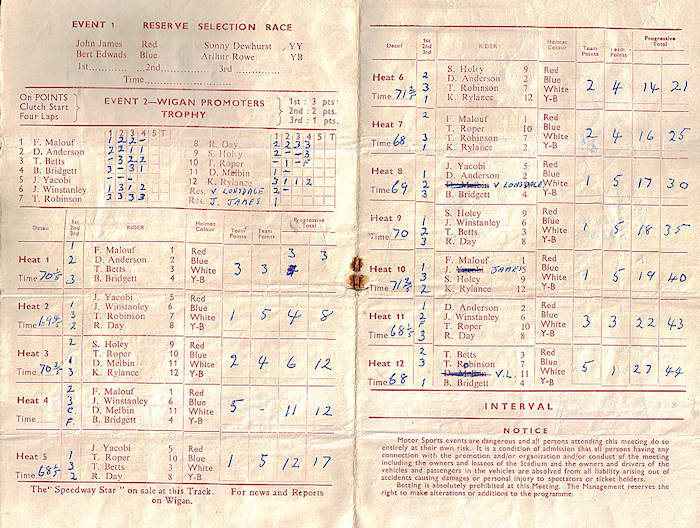 EVENT 1 RESERVE SELECTION RACE
John James Red Sunny Dewhurst YY
Bert Edwads Blue Arthur Rowe YB
1st 2nd 3rd
Time
On POINTS
Clutch Start
Four Laps
EVENT 2—WIGAN PROMOTERS
TROPHY
1st : 3 pts.
2nd : 2 pts.
3rd : 1 pts.
1 2 3 4 5 T 1 2 3 4 5 T
1 F. Malouf 1 2 2 – 8 R. Day 2 2 3 3
2 D. Anderson 2 2 1 1 9 S. Holey 2 – – 3
3 T. Betts – 3 2 2 10 T. Roper 1 – 1 – F
4 B. Bridgett 3 – 3 1 11 D. Melbin 1 –
5 J. Yacobi – – 12 K. Rylance 3 1 1 2
6 J. Winstanley 1 3 1 2 Res. V LONSDALE 2 –
7 T. Robinson 3 3 3 3 Res. J. JAMES 1
Detail 1st 2nd 3rd RIDER Helmet Colour Team Points Team Points Progressive Total
1 F. Malouf 1 Red 3 3
Heat 1 2 D. Anderson 2 Blue
T. Betts 3 White 3 3
Time 70 1/5 3 B. Bridgett 4 Y-B
J. Yacobi 5 Red
Heat 2 2 J. Winstanley 6 Blue
3 T. Robinson 7 White 1 5 4 8
Time 69 4/5 2 R. Day 8 Y-B
2 S. Holey 9 Red
Heat 3 3 T. Roper 10 Blue
1 D. Melbin 11 White 2 4 6 12
Time 70 3/5 3 K. Rylance 12 Y-B
2 F. Malouf 1 Red
Heat 4 3 J. Winstanley 6 Blue
D. Melbin 11 White 5 - 11 12
Time F. B. Bridgett 4 Y-B
J. Yacobi 5 Red
Heat 5 1 T. Roper 10 Blue
3 T. Betts 3 White 1 5 12 17
Time 68 1/5 2 R. Day 8 Y-B
The "Speedway Star" on sale at this Track. For news and Reports
on Wigan.
Detail 1st 2nd 3rd RIDER Helmet Colour Team Points Team Points Progressive Total
S. Holey 9 Red
Heat 6 2 D. Anderson 2 Blue
3 T. Robinson 7 White 2 4 14 21
Time 71 2/5 1 K. Rylance 12 Y-B
2 F. Malouf 1 Red
Heat 7 T. Roper 10 Blue
3 T. Robinson 7 White 2 4 16 25
Time 68 1 K. Rylance 2 Y-B
J. Yacobi 5 Red
Heat 8 1 D. Anderson 2 Blue
2 D. Melbin V LONSDALE White 1 5 17 30
Time 69 3 B. Bridgett 4 Y-B
S. Holey 9 Red
Heat 9 1 J. Winstanley 6 Blue
2 T. Betts 3 White 1 5 18 35
Time 70 3 R. Day 8 Y-B
F. Malouf 1 Red
Heat 10 1 J. Yacobi JAMES Blue
3 S. Holey 9 White 1 5 19 40
Time 71 2/5 2 K. Rylance 12 Y-B
1 D. Anderson 2 Red
Heat 11 2 J. Winstanley 6 Blue
F T. Roper 10 White 3 3 22 43
Time 68 1/5 3 R. Day 8 Y-B
2 T. Betts 3 Red
Heat 12 3 T. Robinson 7 Blue
D. Melbin V.L. 11 White 5 1 27 44
Time 68 1 B. Bridgett 4 Y-B
INTERVAL
NOTICE
Motor Sports events are dangerous and all persons attending this meeting do so
entirely at their own risk. It is a condition of admission that all persons having any
connection with the promotion and/or organization and/or conduct of the meeting
including the owners and lessees of the Stadium and the owners and drivers of the
vehicles and passengers in the vehicles are absolved from all liability arising out of
accidents causing damages or personal injury to spectators or ticket holders.
Betting is absolutely prohibited at this Meeting. The Management reserves
the right to make alterations or additions to the programme.